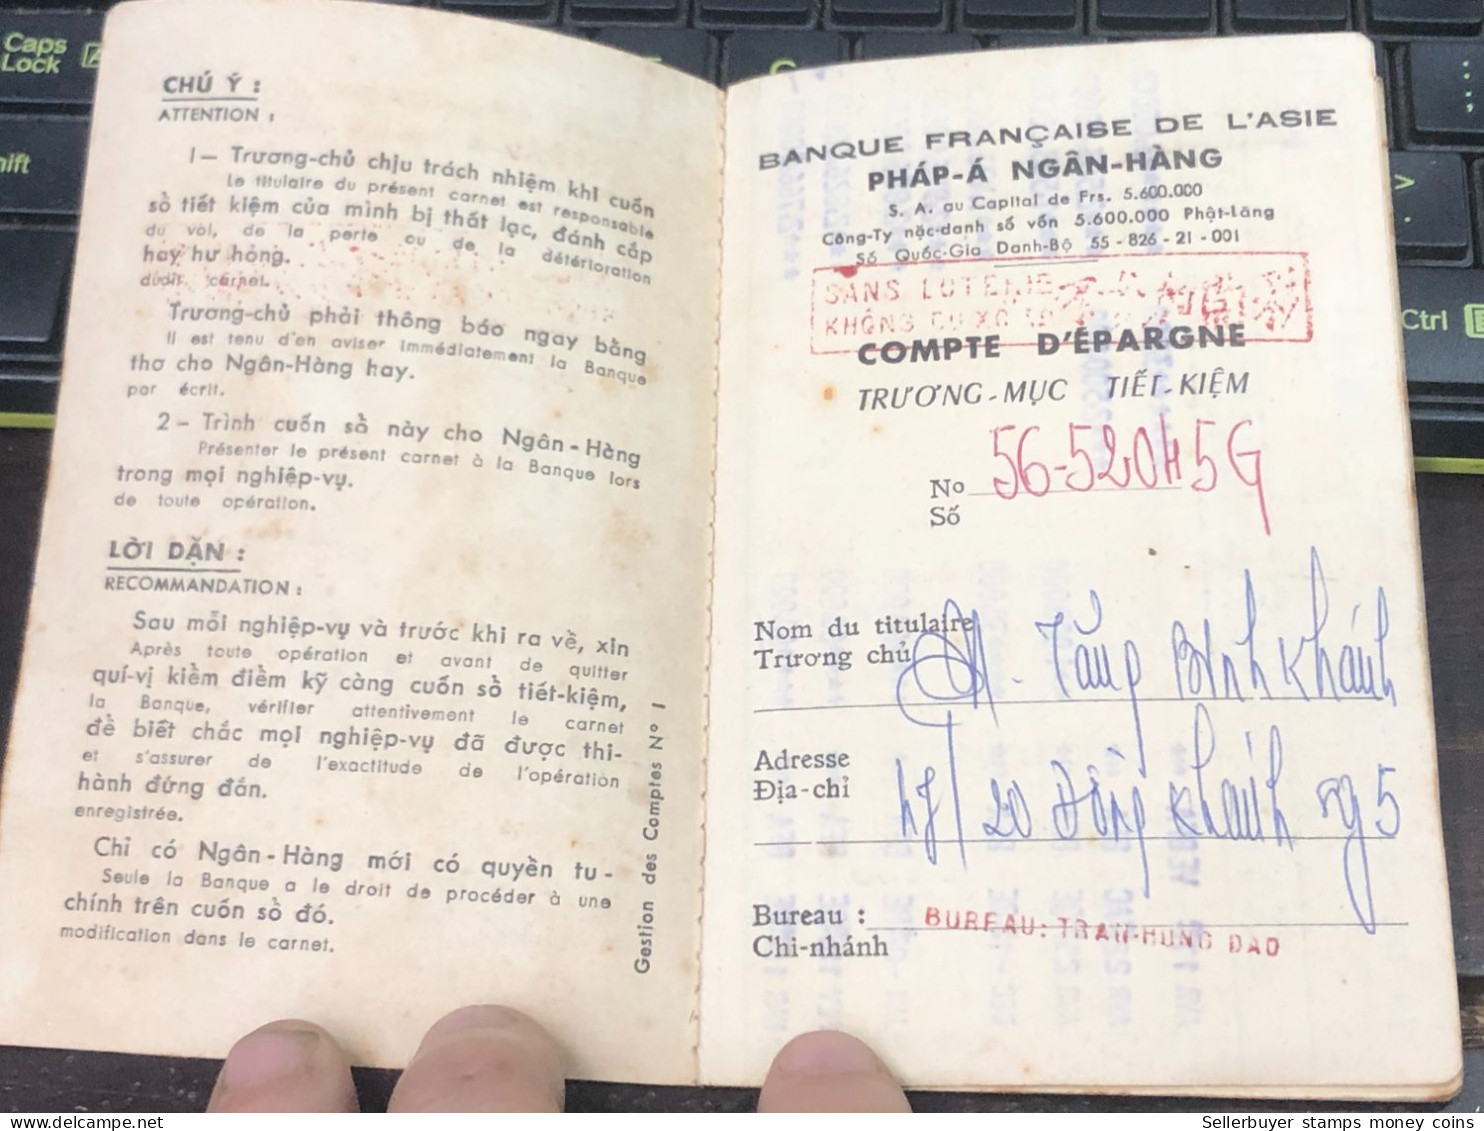 Caps
Lock
CHÚ Ý :
ATTENTION :
1— Trương-chủ chịu trách nhiệm khi cuốn
Le titulaire du présent carnet est responsable
sổ tiết kiệm của mình bị thất lạc, đánh cắp
du vol, de la perte ou de la détérioration
hay hư hỏng.
dudit carnet.
Trương-chủ phải thông báo ngay bằng
Il est tenu d'en aviser immédiatement la Banque
thơ cho Ngân-Hàng hay.
par écrit.
2 – Trình cuốn sổ này cho Ngân - Hàng
Présenter le présent carnet à la Banque lors
trong mọi nghiệp-vụ.
de toute opération.
LỜI DẶN :
RECOMMANDATION :
Sau mỗi nghiệp-vụ và trước khi ra về, xin
Après toute opération et avant de quitter
quí-vị kiểm điểm kỹ càng cuốn sổ tiết-kiệm,
la Banque, vérifier attentivement le carnet
để biết chắc mọi nghiệp-vụ đã được thi-
et s'assurer de l'exactitude de l'opération
hành đứng đắn.
enregistrée.
Chỉ có Ngân - Hàng mới có quyền tu -
Seule la Banque a le droit de procéder à une
chính trên cuốn sổ đó.
modification dans le carnet.
Gestion des Comptes N° 1
BANQUE FRANÇAISE DE L'ASIE
PHÁP-Á NGÂN-HÀNG
S. A. au Capital de Frs. 5.600.000
Công-Ty nặc-danh số vốn 5.600.000 Phật-lăng
Số Quốc-Gia Danh-Bộ 55 - 826 - 21 - 001
SANS LOTERIE
KHÔNG DỰ XỔ SỐ
COMPTE D'ÉPARGNE
TRƯƠNG - MỤC TIẾT - KIỆM
No 56-520H5G
Số
Nom du titulaire
Trương chủ M. Tăng Bỉnh Khánh
Adresse
Địa-chỉ 20 Đồng Khánh 5
Bureau : BUREAU: TRAN-HUNG DAO
Chi-nhánh
Ctrl
Sellerbuyer stamps money coins